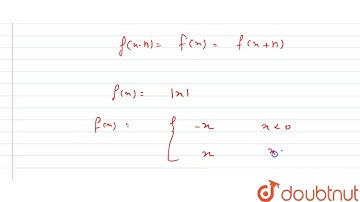 f(x-h) = f(x) = f(x+h)
f(x) = |x|
f(x) = { -x x<0
x x
doubtnut